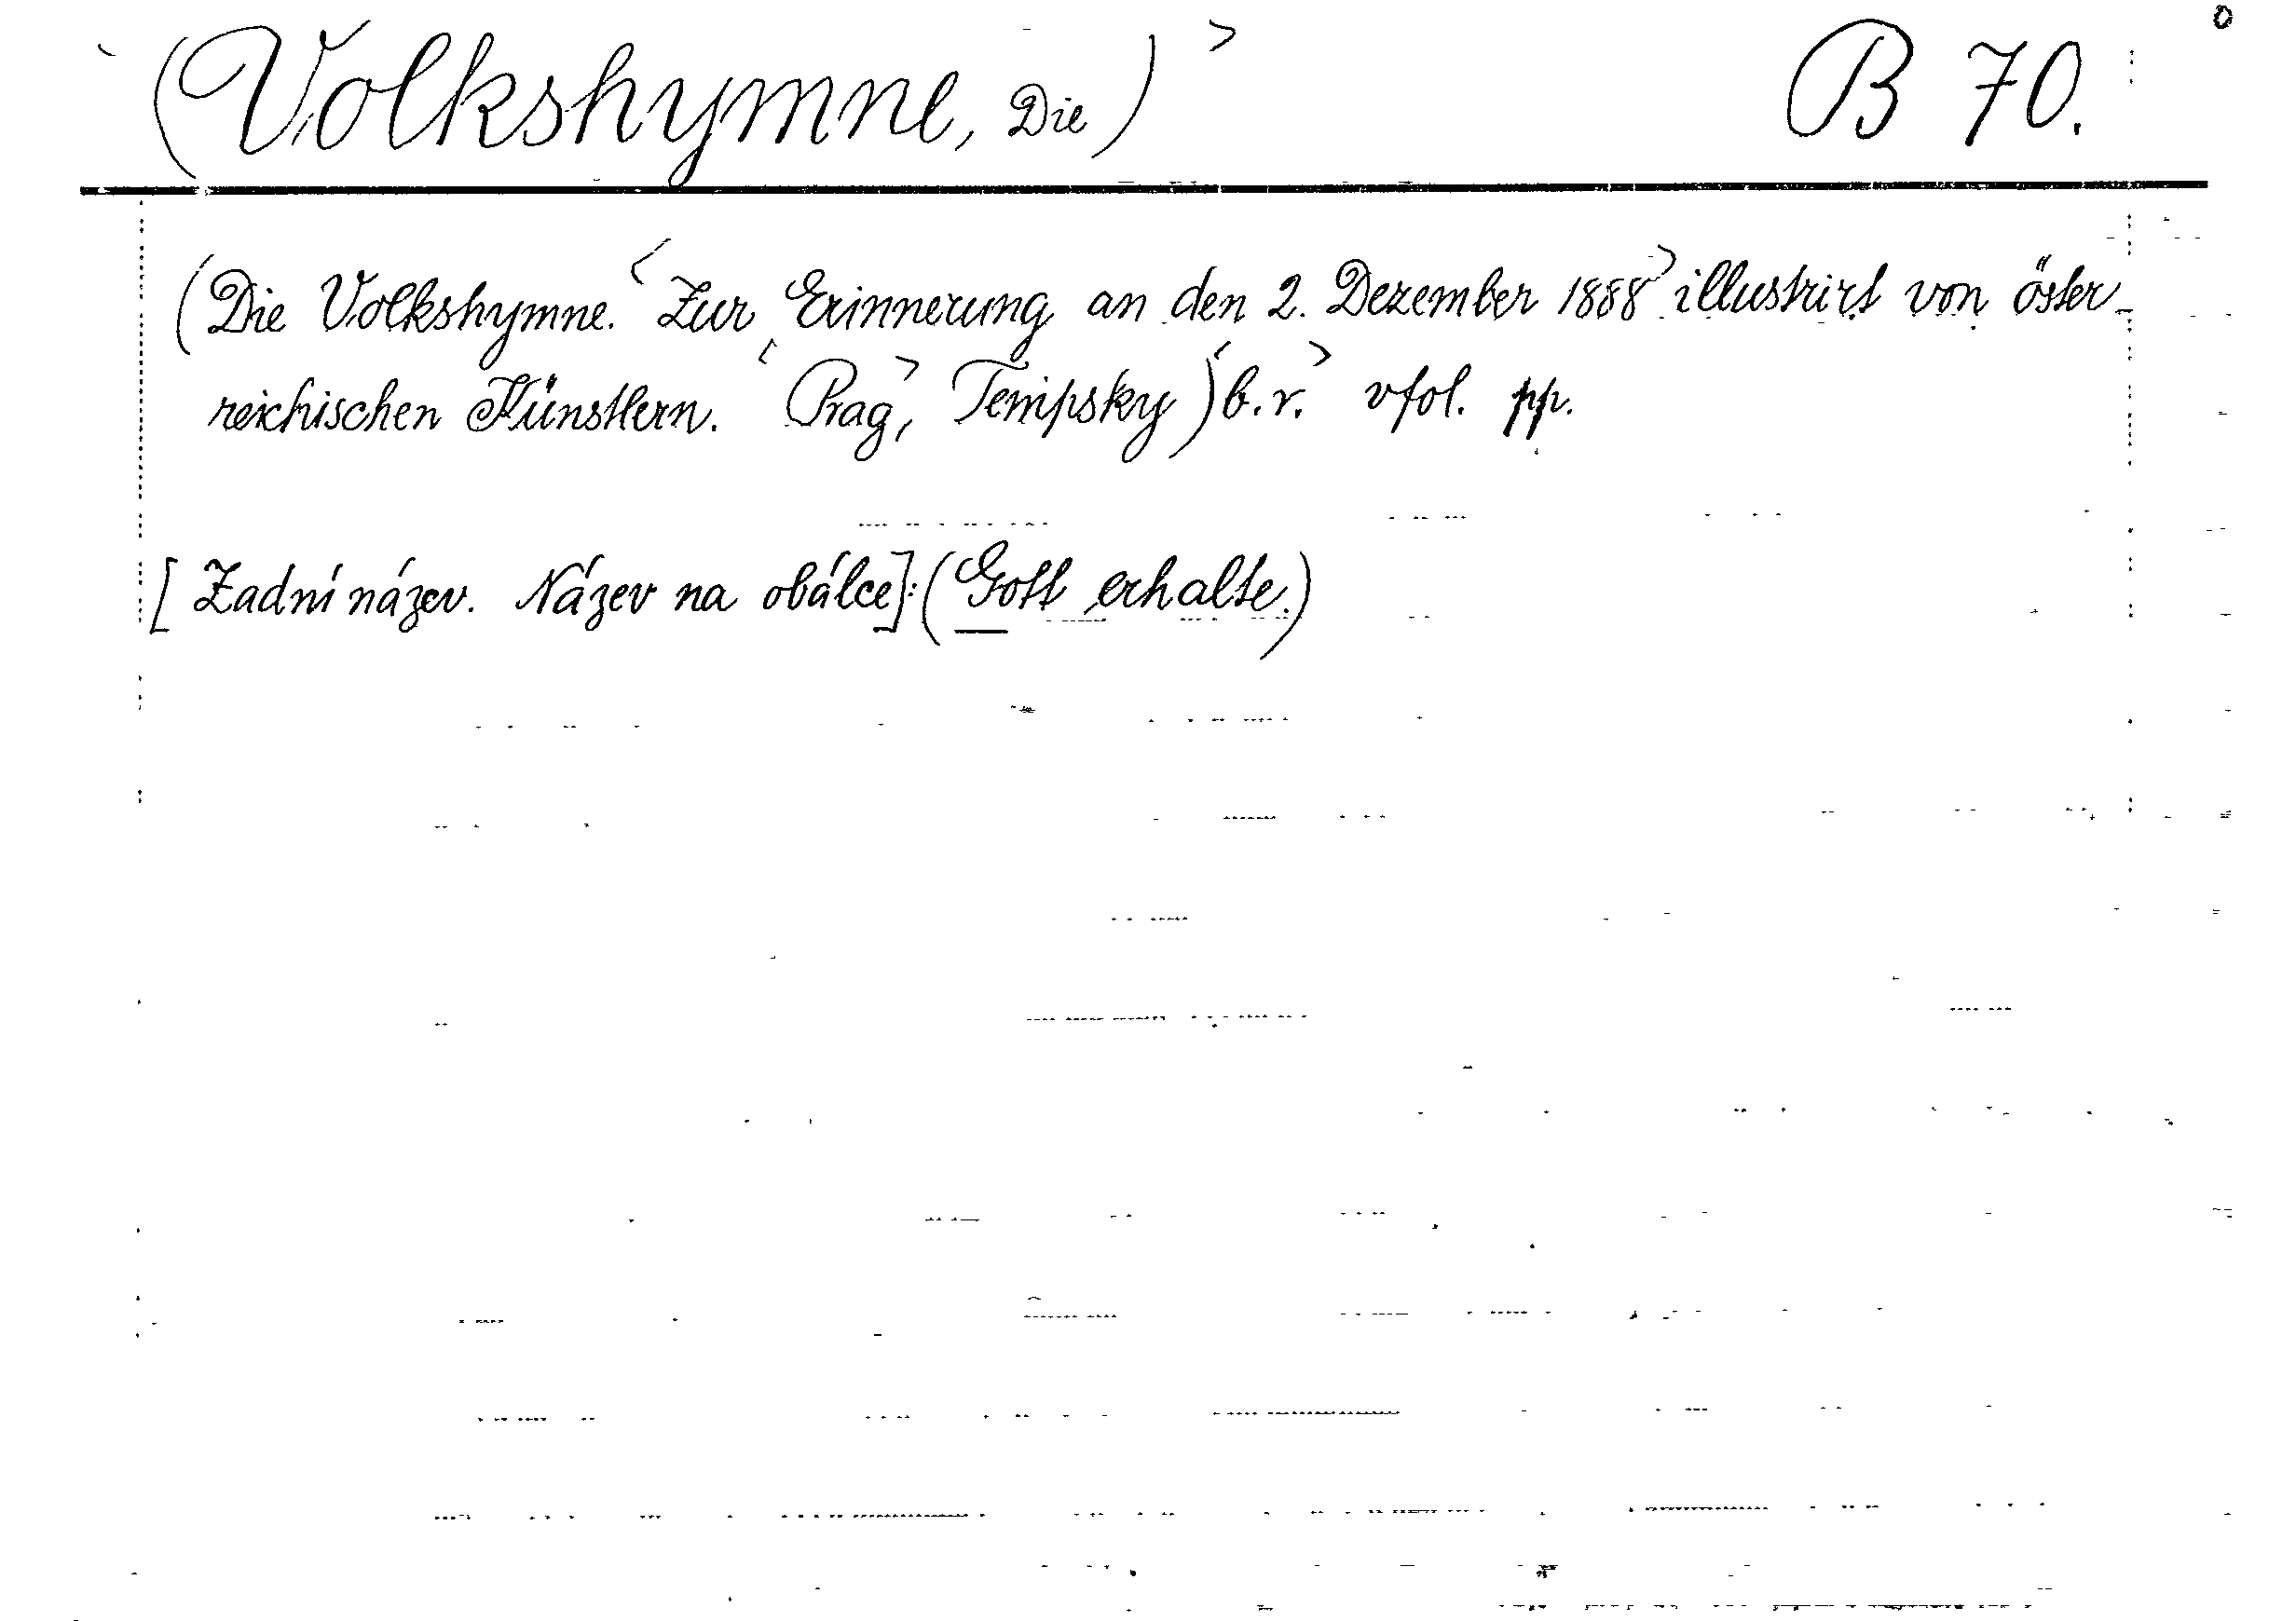 (Volkshymne, Die) B 70.
(Die Volkshymne. Zur Erinnerung an den 2. Dezember 1888 illustrirt von öster-
reichischen Künstlern. Prag, Tempsky) b. r. vfol. pp.
[Zadní název. Název na obálce]: (Gott erhalte.)